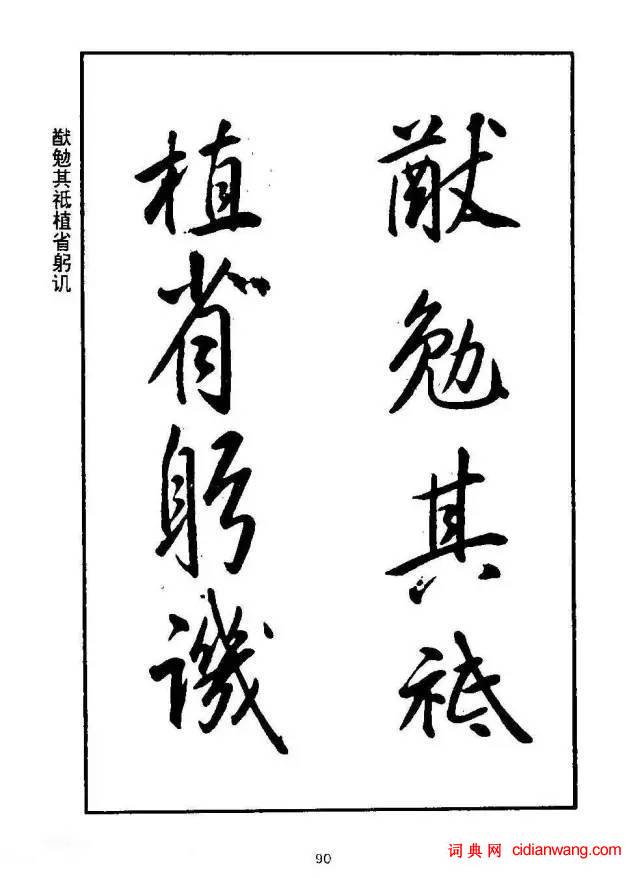 猷勉其祗
植省躬譏
猷勉其祗植省躬讥
90
词典网 cidianwang.com